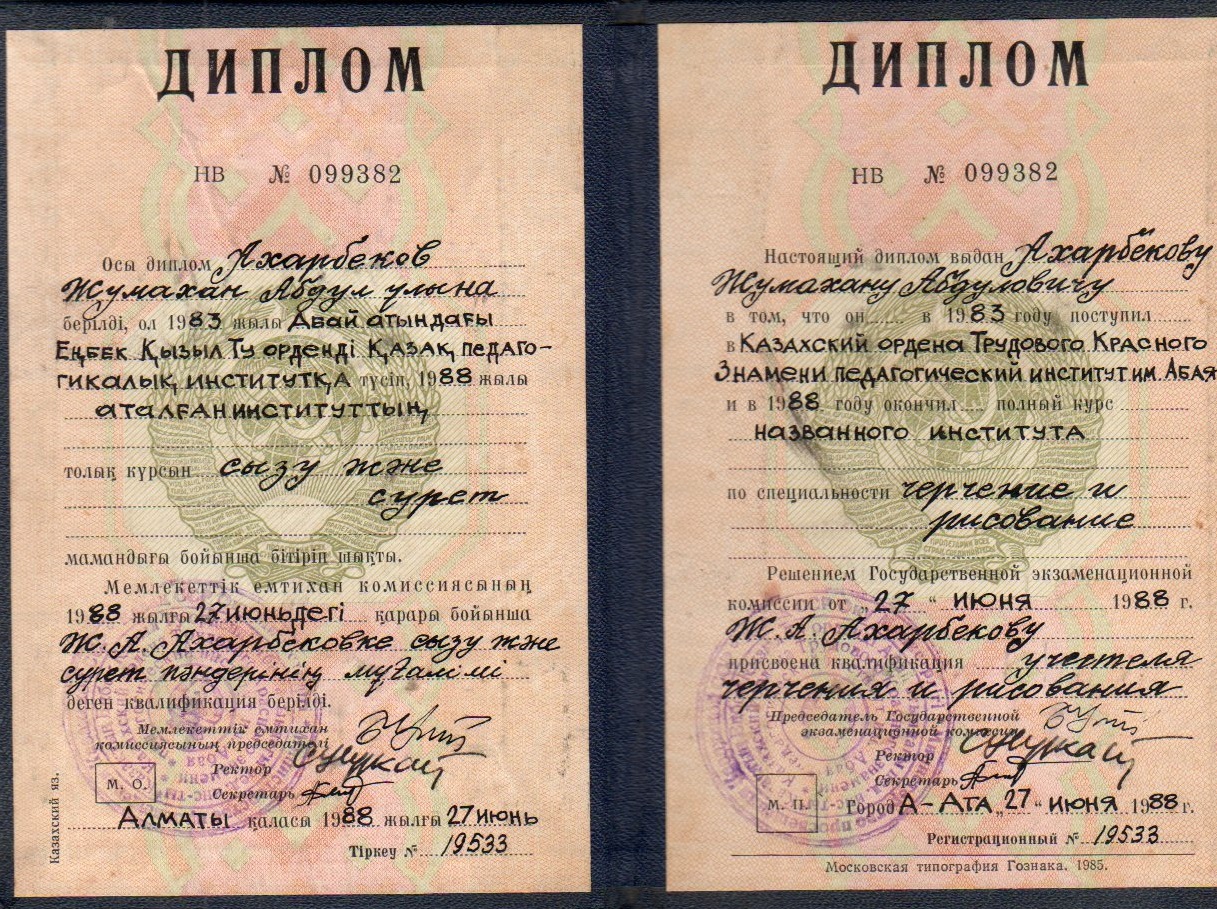 ДИПЛОМ
НВ № 099382
Осы диплом Ахарбеков
Жумахан Абдул улына
берілді, ол 1983 жылы Абай атындағы
Еңбек Қызыл Ту орденді Қазақ педаго-
гикалық институтқа түсіп, 1988 жылы
аталған институттың
толық курсын сызу және
сурет
мамандығы бойынша бітіріп шықты.
Мемлекеттік емтихан комиссиясының
1988 жылғы 27 июньдегі қарары бойынша
Ж. А. Ахарбековке сызу және
сурет пәндерінің мұғалімі
деген квалификация берілді.
Мемлекеттік емтихан
комиссиясының председателі
Ректор
М. О.
Секретарь
Алматы қаласы 1988 жылғы 27 июнь
Тіркеу № 19533
Казахский яз.
ДИПЛОМ
НВ № 099382
Настоящий диплом выдан Ахарбекову
Жумахану Абдуловичу
в том, что он в 1983 году поступил
в Казахский ордена Трудового Красного
Знамени педагогический институт им Абая
и в 1988 году окончил полный курс
названного института
по специальности черчение и
рисование
Решением Государственной экзаменационной
комиссии от „27“ июня 1988 г.
Ж. А. Ахарбекову
присвоена квалификация учетеля
черчения и рисования
Председатель Государственной
экзаменационной комиссии
Ректор
Секретарь
М. П.
Город А-Ата „27“ июня 1988 г.
Регистрационный № 19533
Московская типография Гознака. 1985.